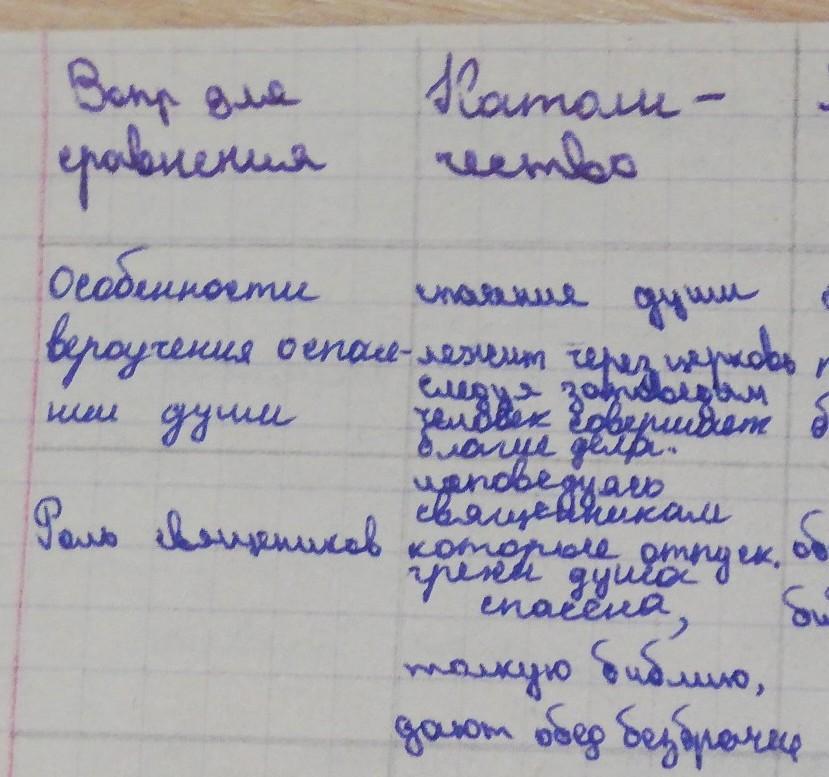 Вопр для
сравнения
Католи-
чество
Особенности
вероучения о спасе-
нии души
спасения души
лежит через церковь
следуя заповедям
человек совершает
благие дела.
исповедуясь
священникам
которые отпуск.
грехи душа
спасена,
Роль священиков
толкую библию,
дают обед безбрачие